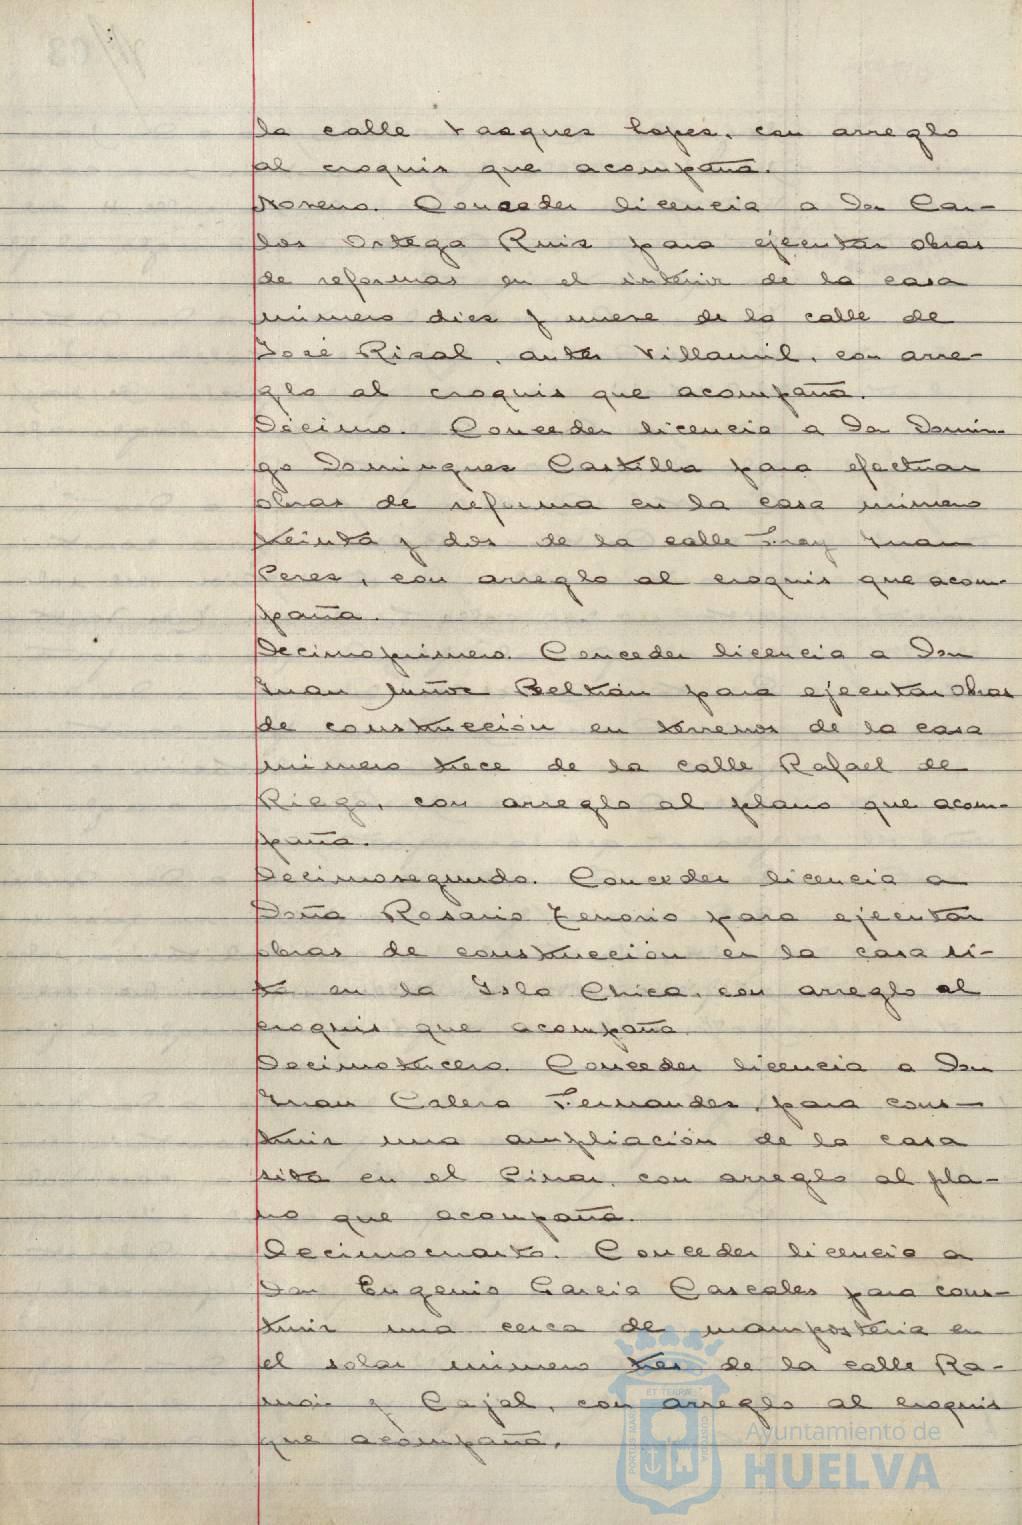 la calle Vasques Lopes, con arreglo
al croquis que acompaña.
Noveno. Conceder licencia a Don Car-
los Ortega Ruis para ejecutar obras
de reformas en el interior de la casa
número dies y nueve de la calle de
José Risal, antes Villamil, con arre-
glo al croquis que acompaña.
Décimo. Conceder licencia a Don Domin-
go Domingues Castilla para efectuar
obras de reforma en la casa número
treinta y dos de la calle Fray Juan
Peres, con arreglo al croquis que acom-
paña.
Decimoprimero. Conceder licencia a Don
Juan Beltrán para ejecutar obras
de construcción en terrenos de la casa
número trece de la calle Rafael de
Riego, con arreglo al plano que acom-
paña.
Decimosegundo. Conceder licencia a
Doña Rosario Tenorio para ejecutar
obras de construcción en la casa si-
ta en la Isla Chica, con arreglo al
croquis que acompaña.
Decimotercero. Conceder licencia a Don
Juan Calero Fernandes, para cons-
truir una ampliación de la casa
sita en el Pinar, con arreglo al pla-
no que acompaña.
Decimocuarto. Conceder licencia a
Don Eugenio Garcia Cascales para cons-
truir una cerca de mamposteria en
el solar número tres de la calle Ra-
mon y Cajal, con arreglo al croquis
que acompaña.
Ayuntamiento de
HUELVA